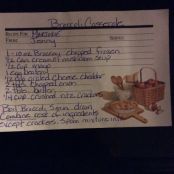 Broccoli Casserole
Recipe: Marjorie
From: Jenny
1-10 oz Broccoli chopped frozen
1/2 can cream of mushroom soup
1/2 cup mayo
1 egg beaten
1/2 cup grated cheese cheddar
2 tbls chopped onion
2 tbls butter
1/4 cup crushed ritz crackers
Boil Broccoli, 5 min drain
Combine rest of ingredients
except crackers. Spoon mixture into